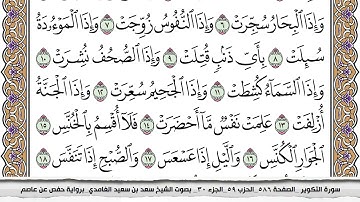 وَإِذَا ٱلْبِحَارُ سُجِّرَتْ ٦ وَإِذَا ٱلنُّفُوسُ زُوِّجَتْ ٧ وَإِذَا ٱلْمَوْءُۥدَةُ
سُئِلَتْ ٨ بِأَيِّ ذَنۢبٖ قُتِلَتْ ٩ وَإِذَا ٱلصُّحُفُ نُشِرَتْ ١٠
وَإِذَا ٱلسَّمَآءُ كُشِطَتْ ١١ وَإِذَا ٱلْجَحِيمُ سُعِّرَتْ ١٢ وَإِذَا ٱلْجَنَّةُ
أُزْلِفَتْ ١٣ عَلِمَتْ نَفْسٞ مَّآ أَحْضَرَتْ ١٤ فَلَآ أُقْسِمُ بِٱلْخُنَّسِ ١٥
ٱلْجَوَارِ ٱلْكُنَّسِ ١٦ وَٱلَّيْلِ إِذَا عَسْعَسَ ١٧ وَٱلصُّبْحِ إِذَا تَنَفَّسَ ١٨
سورة التكوير _الصفحة ٥٨٦_ الحزب ٥٩_ الجزء ٣٠_ بصوت الشيخ سعد بن سعيد الغامدي_ برواية حفص عن عاصم